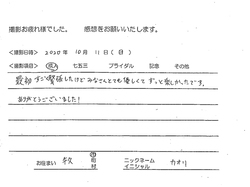 撮影お疲れ様でした。 感想をお願いいたします。
<撮影日時> 2020年 10月 11日(日)
<撮影項目> 成人 七五三 ブライダル 記念 その他
最初すごく緊張したけどみなさんとても優しくてずっと楽しかったです。
ありがとうございました!
お住まい 牧 市 町 村 ニックネーム イニシャル カオリ